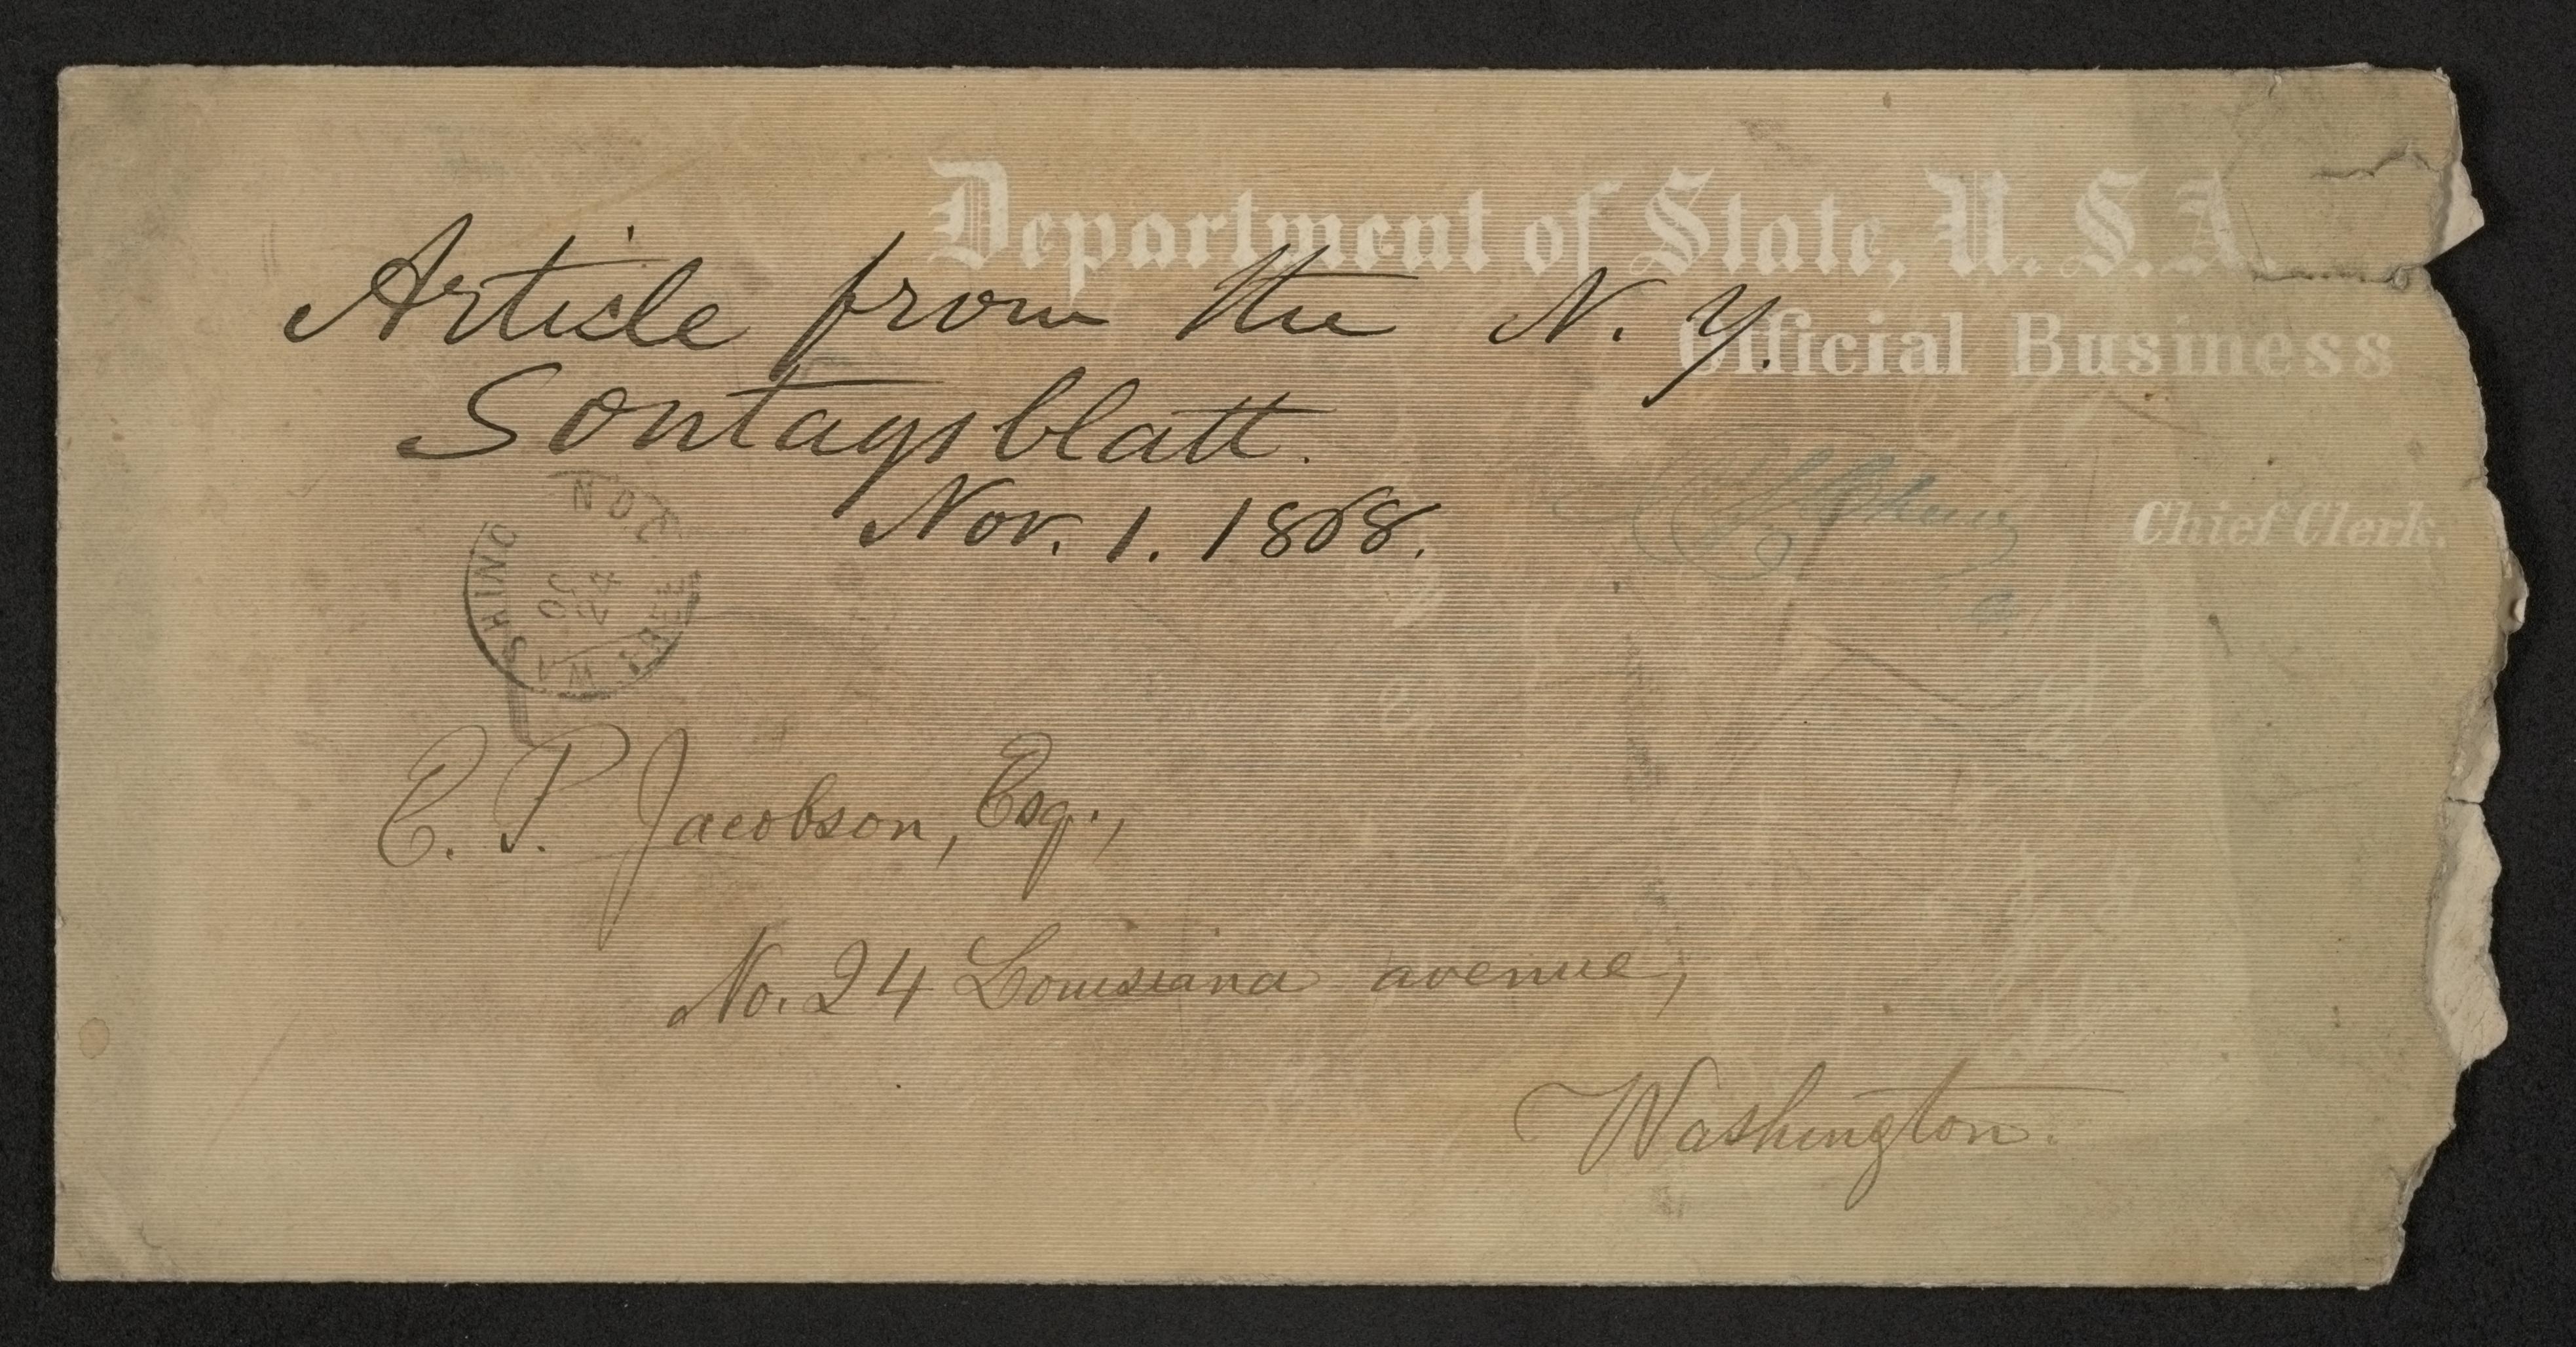 Department of State, U. S. A.
Official Business
Chief Clerk.
Article from the N. Y.
Sontagsblatt.
Nov. 1. 1868.
WASHING
FREE
E. P. Jacobson, Esq.,
No. 24 Louisiana avenue,
Washington.